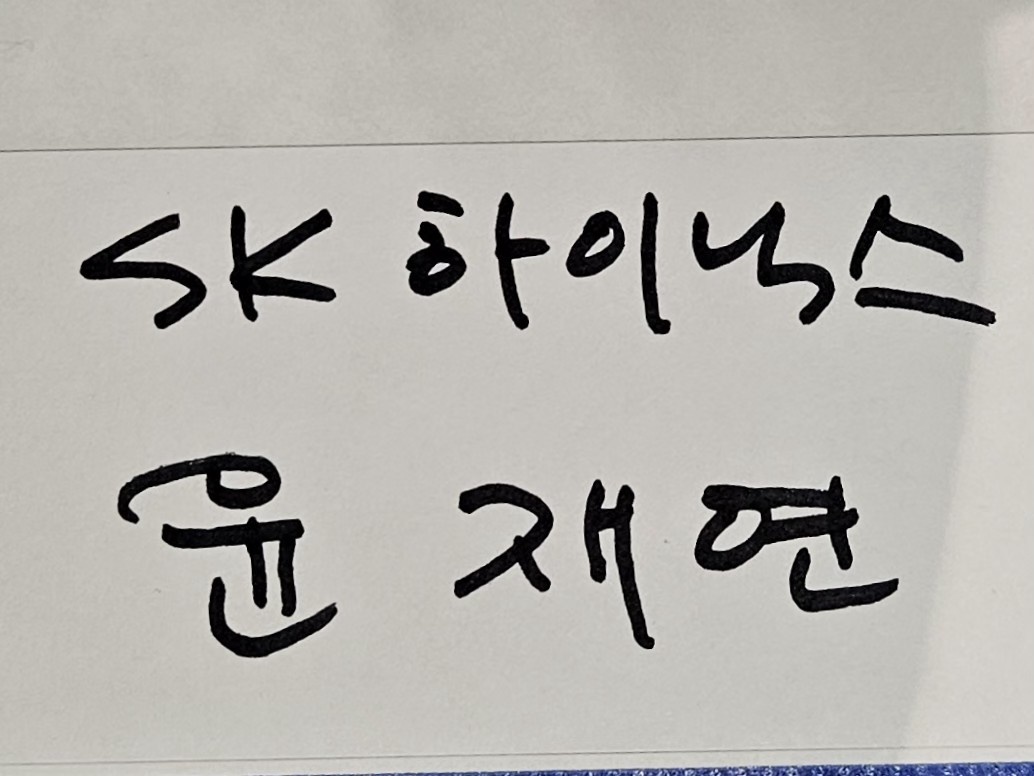 SK 하이닉스
윤 재연